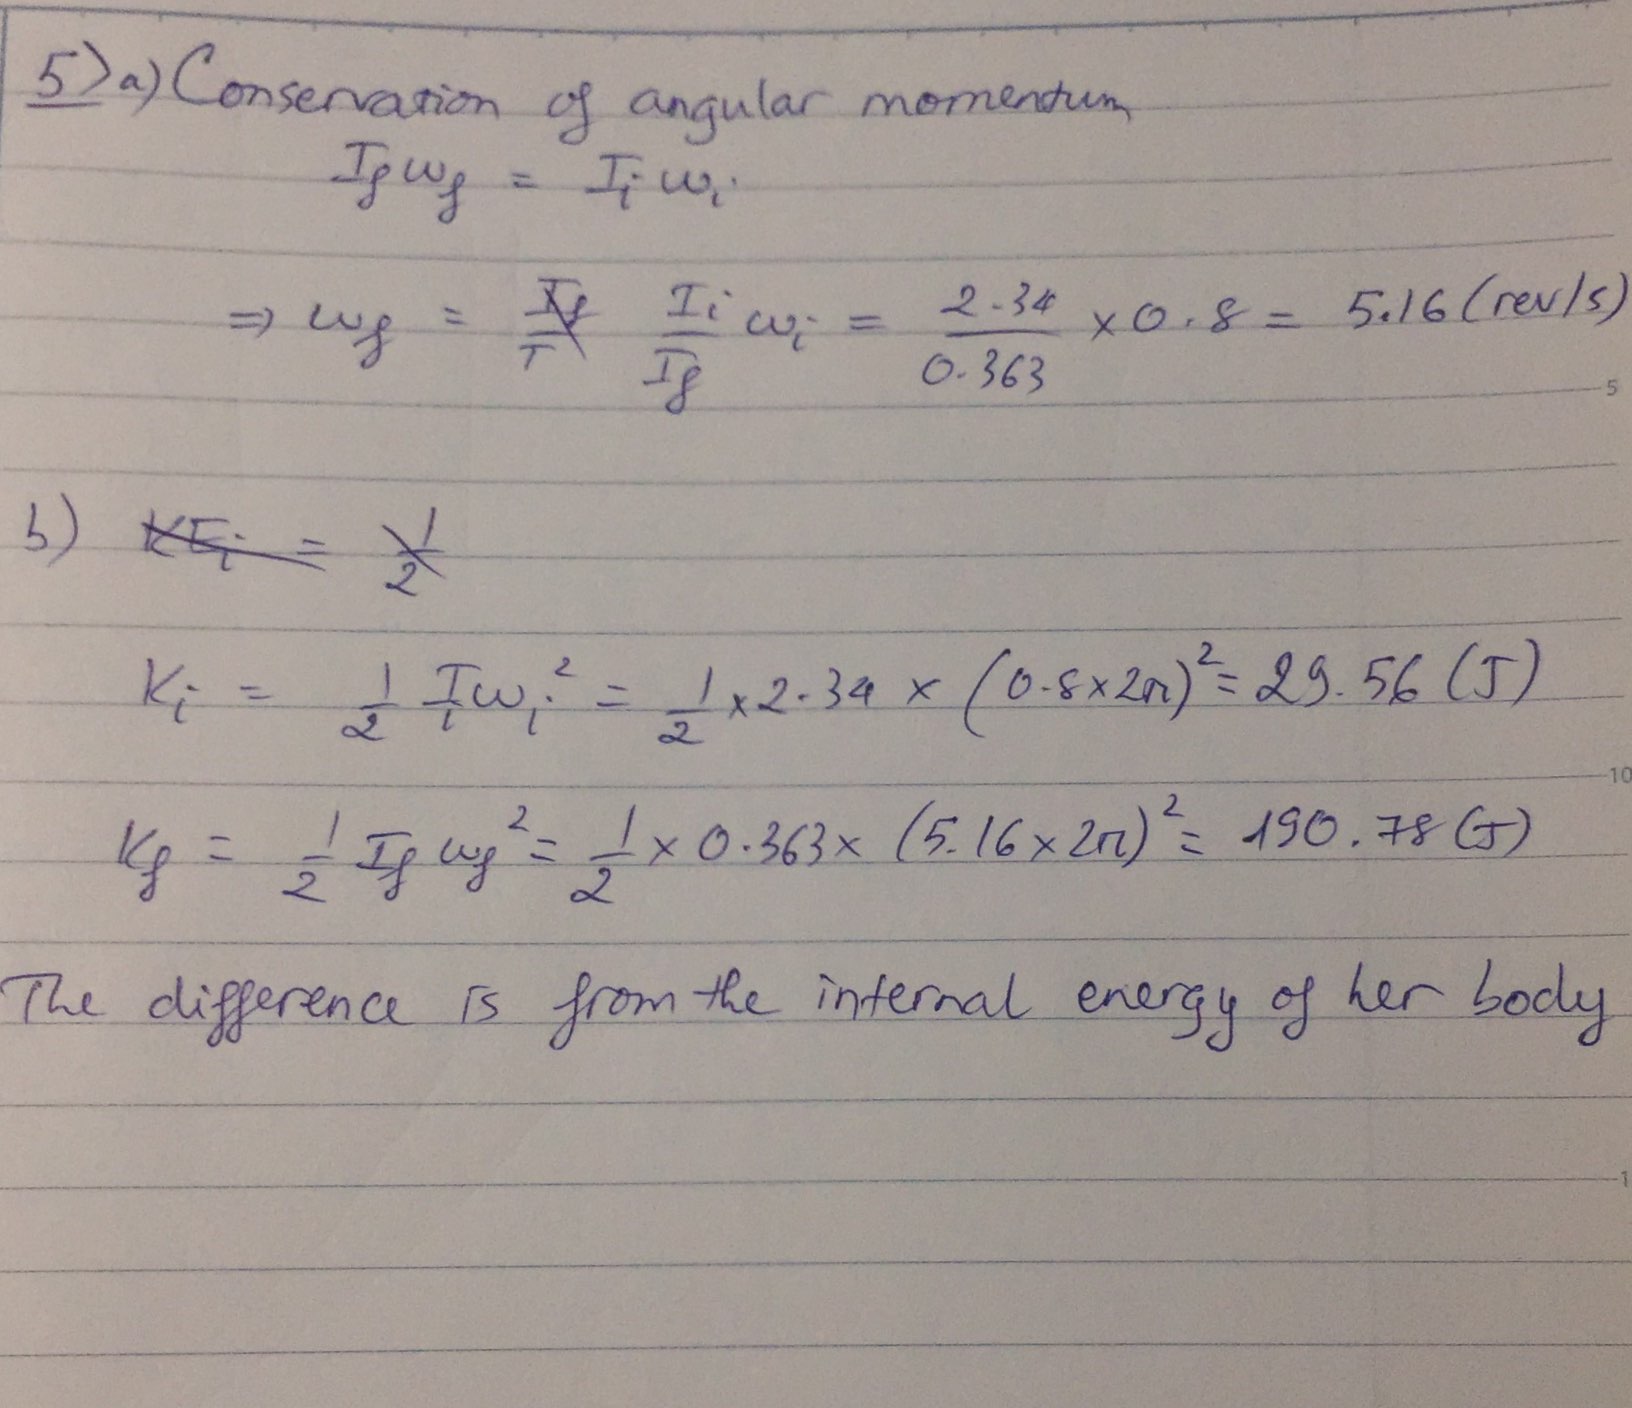 5> a) Conservation of angular momentum
I_f ω_f = I_i ω_i
⇒ ω_f = I_f/I I_i/I_f ω_i = 2.34/0.363 × 0.8 = 5.16 (rev/s)
5
b) KE_i = 1/2
K_i = 1/2 I_i ω_i² = 1/2 × 2.34 × (0.8 × 2π)² = 29.56 (J)
10
K_f = 1/2 I_f ω_f² = 1/2 × 0.363 × (5.16 × 2π)² = 190.78 (J)
The difference is from the internal energy of her body
1